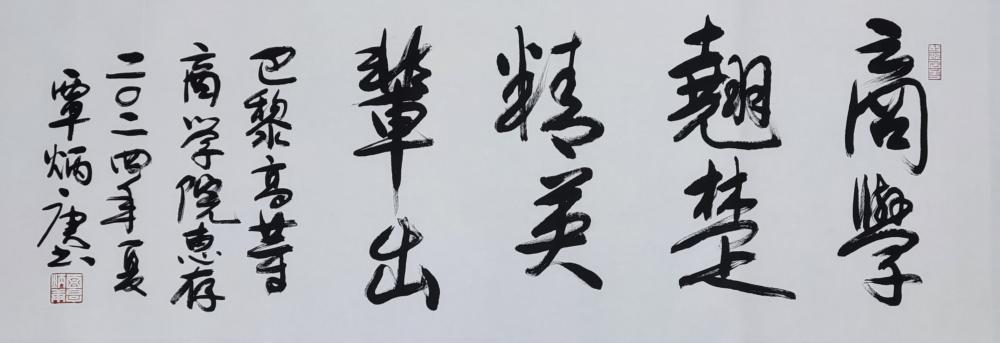 商學
翹楚
精英
輩出
巴黎高等
商学院惠存
二〇二四年夏
覃炳庚书